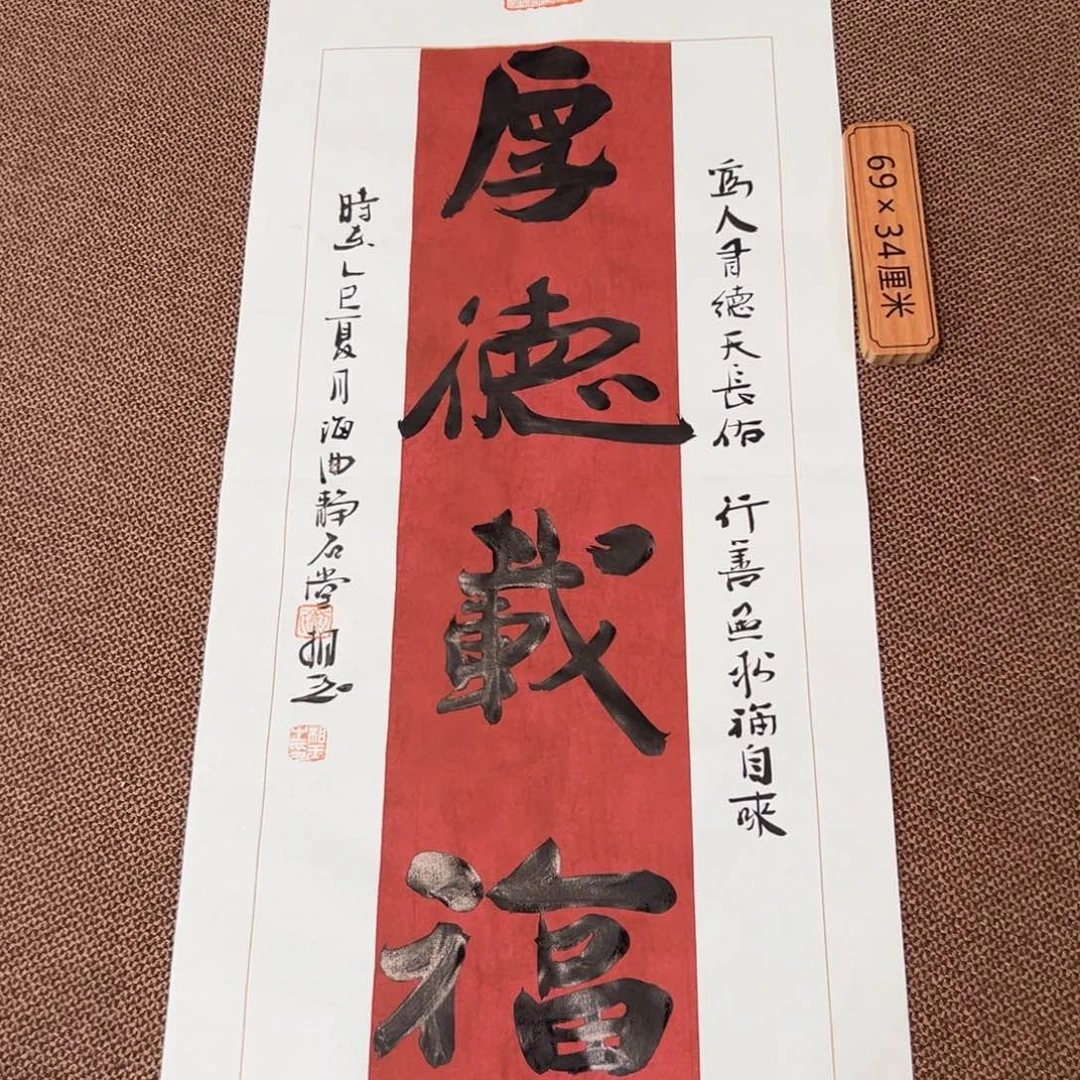 厚德載福
為人有德天長佑 行善無求福自來
時在乙巳夏月海曲静石堂
69×34厘米